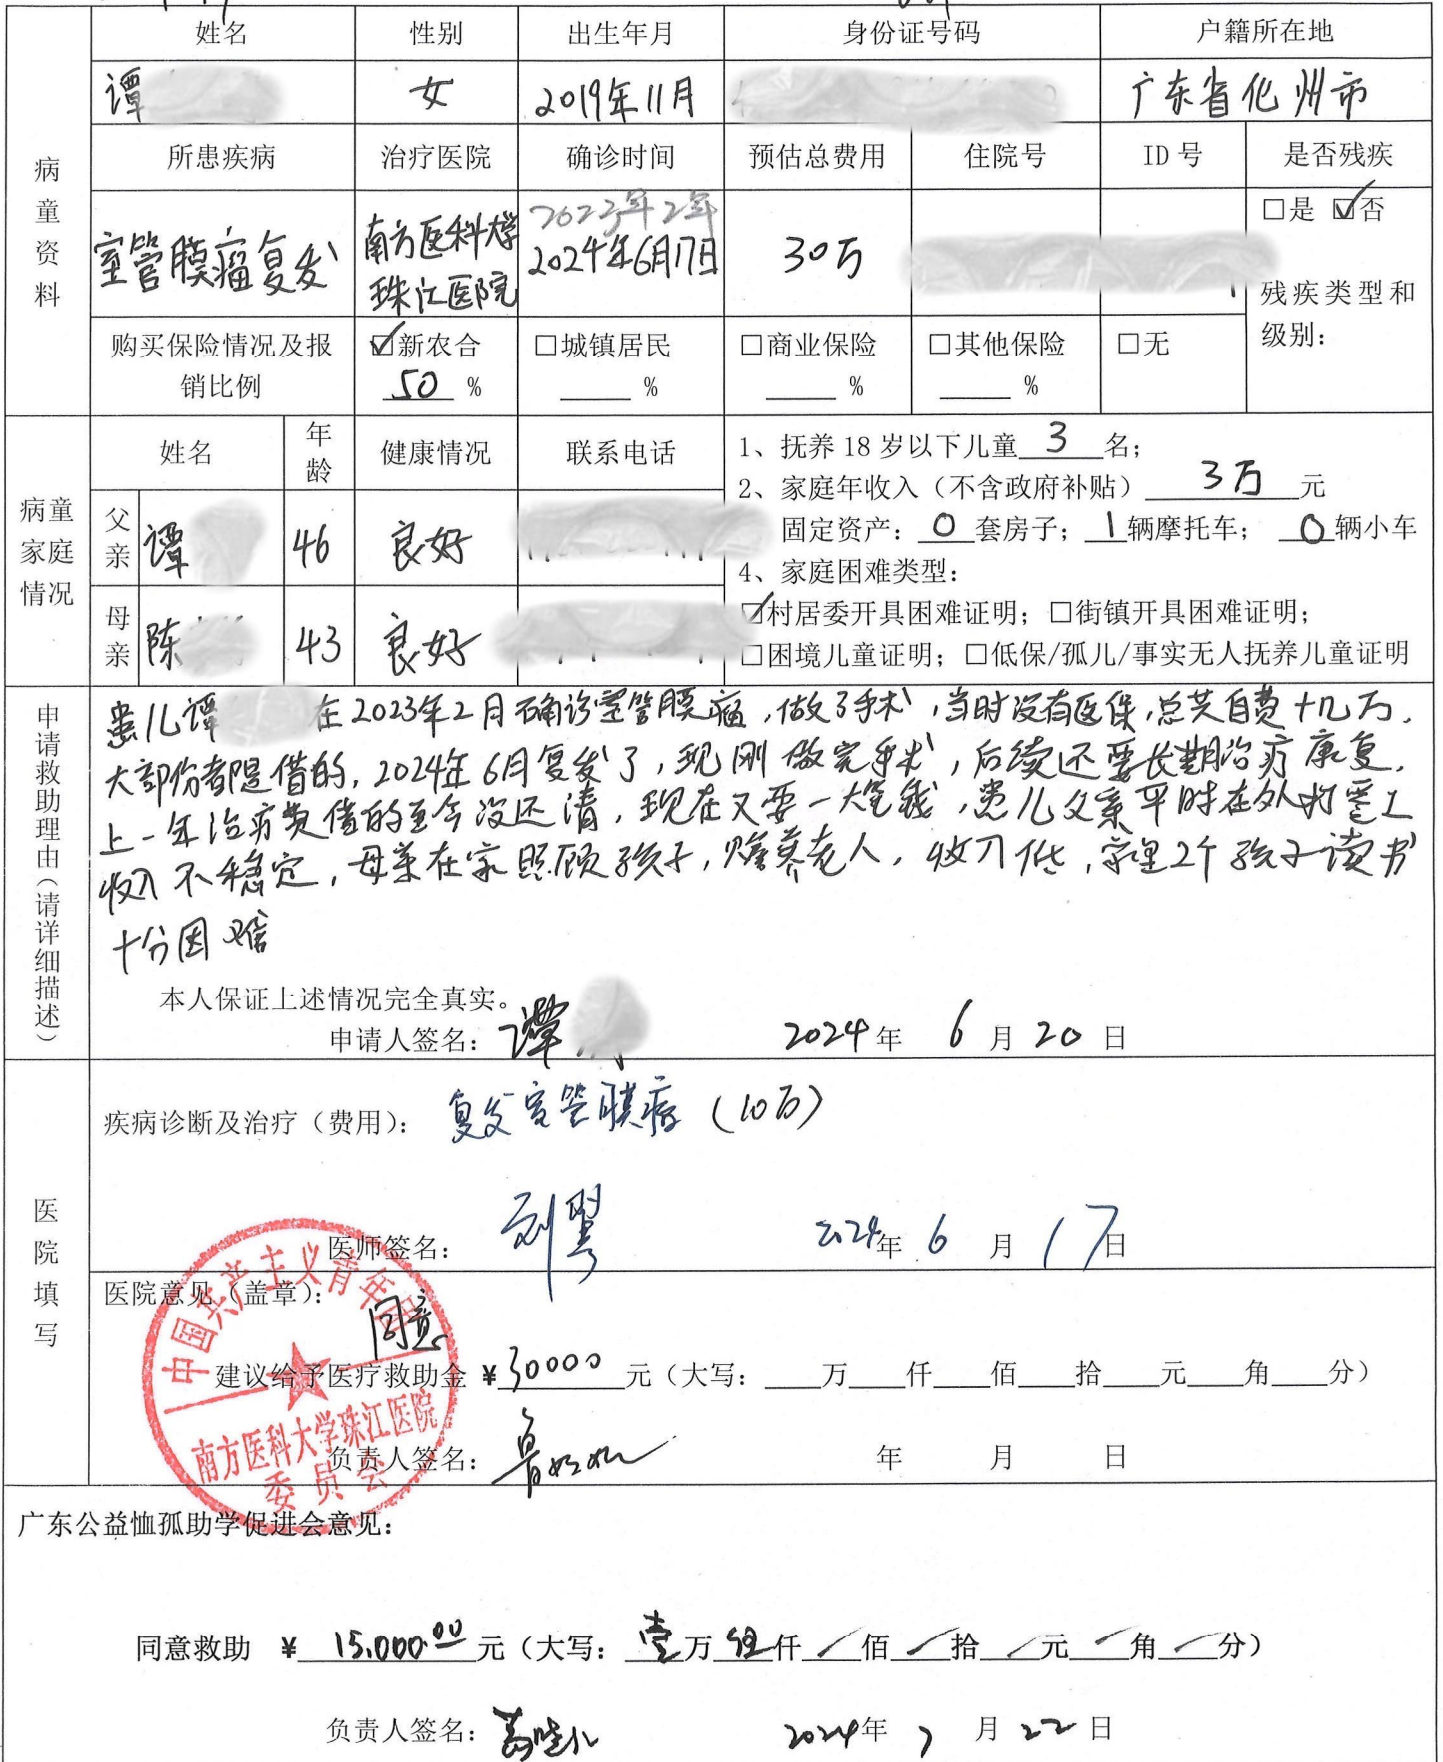 姓名 性别 出生年月 身份证号码 户籍所在地
谭 女 2019年11月 广东省化州市
病童资料
所患疾病 治疗医院 确诊时间 预估总费用 住院号 ID号 是否残疾
室管膜瘤复发 南方医科大学珠江医院 2023年2年 2024年6月17日 30万 □是 ☑否
残疾类型和级别：
购买保险情况及报销比例 ☑新农合 50 % □城镇居民 ____ % □商业保险 ____ % □其他保险 ____ % □无
病童家庭情况
姓名 年龄 健康情况 联系电话
父亲 谭 46 良好
母亲 陈 43 良好
1、抚养18岁以下儿童 3 名；
2、家庭年收入（不含政府补贴） 3万 元
固定资产： 0 套房子； 1 辆摩托车； 0 辆小车
4、家庭困难类型：
☑村居委开具困难证明；□街镇开具困难证明；
□困境儿童证明；□低保/孤儿/事实无人抚养儿童证明
申请救助理由（请详细描述）
患儿谭 在2023年2月确诊室管膜瘤，做了手术，当时没有医保，总共自费十几万，
大部份都是借的，2024年6月复发了，现刚做完手术，后续还要长期治疗康复，
上一年治疗费借的至今没还清，现在又要一大笔钱，患儿父亲平时在外打零工
收入不稳定，母亲在家照顾孩子，赡养老人，收入低，家里2个孩子读书
十分困难
本人保证上述情况完全真实。
申请人签名：谭 2024年 6 月 20 日
医院填写
疾病诊断及治疗（费用）： 复发室管膜瘤（10万）
医师签名： 刘翼 2024年 6 月 17日
医院意见（盖章）：
同意
建议给予医疗救助金 ¥30000 元（大写：___万___仟___佰___拾___元___角___分）
负责人签名： 年 月 日
中国共产主义青年团
南方医科大学珠江医院
委员会
广东公益恤孤助学促进会意见：
同意救助 ¥ 15,000.00 元（大写： 壹万伍仟／佰／拾／元／角／分）
负责人签名： 2024年 7 月 22 日